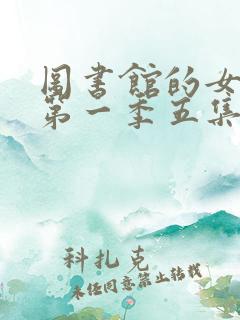 圖書館的女
第一季五集
科扎克
未经同意禁止转载